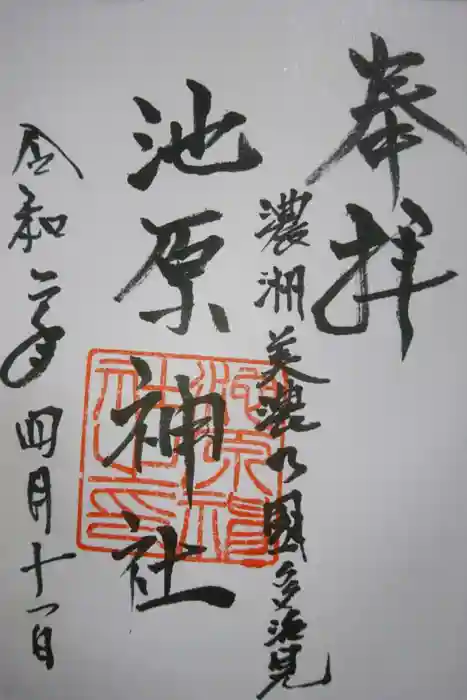 奉拝
濃洲美濃乃國多治見
池原神社
令和二年四月十一日